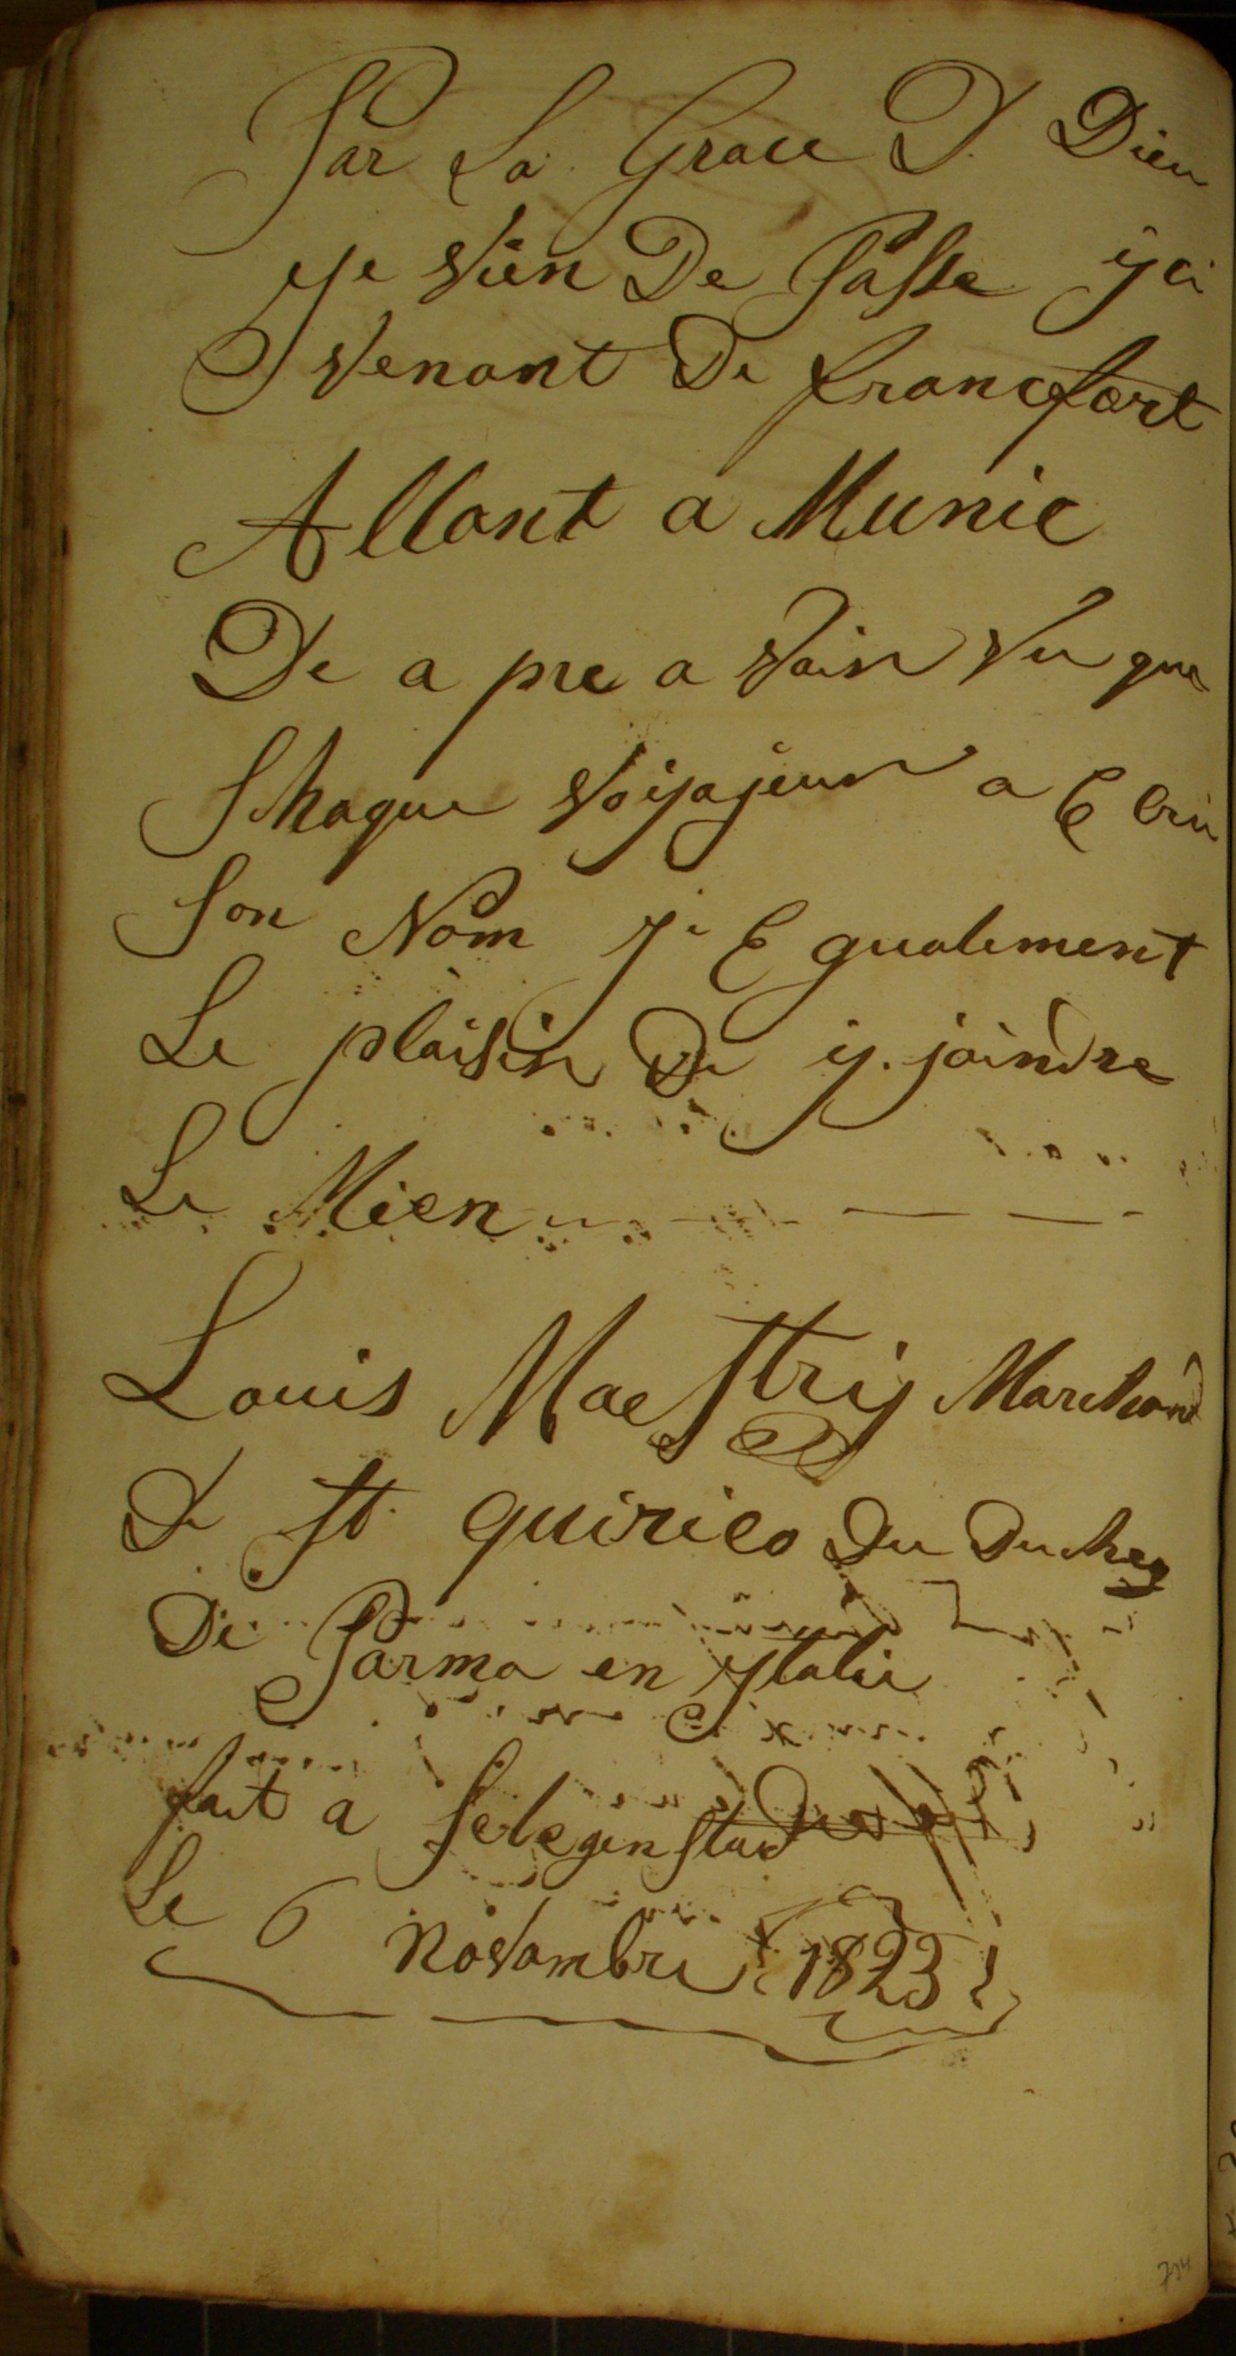 Par La Grace D. Dieu
Je Vien De Passe ÿci
Venant De francfort
Allant a Munic
De a pre a Voir Vu que
Shaque Voÿajeur a E Crii
Son Nom J'E Gualement
Le plaisir De ÿ. joindre
Le Mien
Louis Maestrÿ Marchand
D St. quirico Du Duchez
De Parma en Ytalie
fait a Selegenstad
Le 6 Novambre 1823